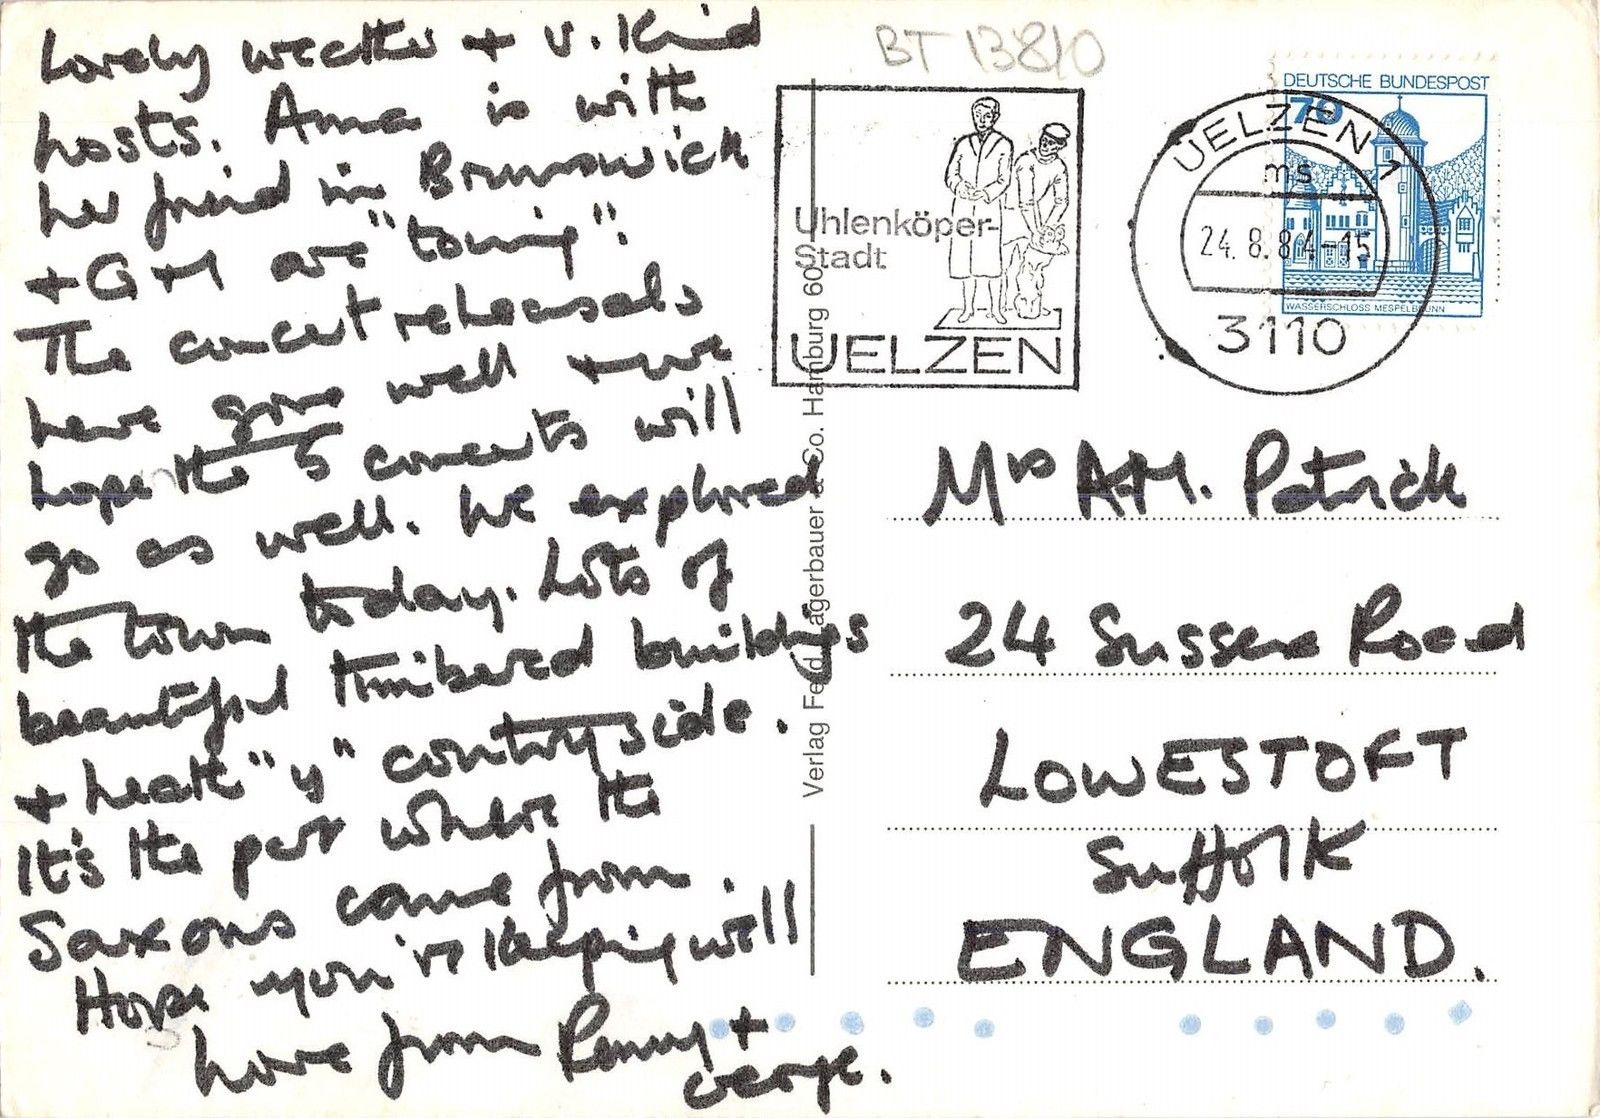 Lovely weather + v. kind
hosts. Anna is with
her friend in Brunswick
+ G + M are "touring".
The concert rehearsals
have gone well + we
hope the 5 concerts will
go as well. We explored
the town today. Lots of
beautiful timbered buildings
+ heath "y" countryside.
It's the part where the
Saxons came from.
Hope you're keeping well
Love from Penny +
George.
BT 13810
Uhlenköper-
Stadt
UELZEN
Verlag Ferd. Lagerbauer & Co. Hamburg 60
DEUTSCHE BUNDESPOST
70
WASSERSCHLOSS MESPELBRUNN
UELZEN 1
ms
24.8.84-15
3110
Mrs A.M. Patrick
24 Sussex Road
LOWESTOFT
Suffolk
ENGLAND.